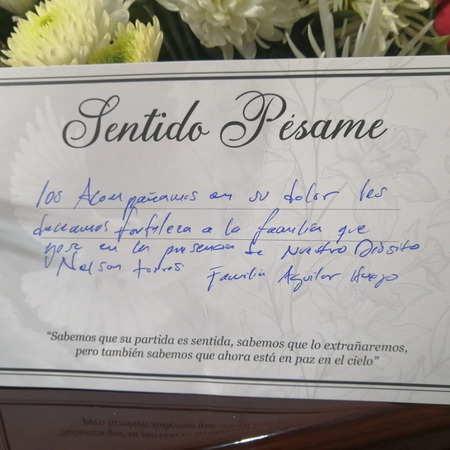 Sentido Pésame
los Acompañamos en su dolor les
deseamos fortaleza a la familia que
gose en la presencia de Nuestro Diosito
Nelson torres Familia Aguilar
"Sabemos que su partida es sentida, sabemos que lo extrañaremos,
pero también sabemos que ahora está en paz en el cielo"